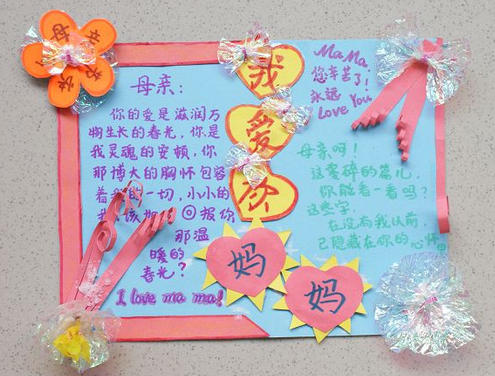 母亲
母亲：
你的爱是滋润万
物生长的春光，你是
我灵魂的安顿，你
那博大的胸怀包容
着我的一切，小小的
我该如何回报你
那温
暖的
春光？
I love ma ma!
我
爱
你
妈
妈
MaMa
您辛苦了！
永远
Love You
母亲呀！
这零碎的篇儿，
你能看一看吗？
这些字，
在没有我以前，
已隐藏在你的心怀